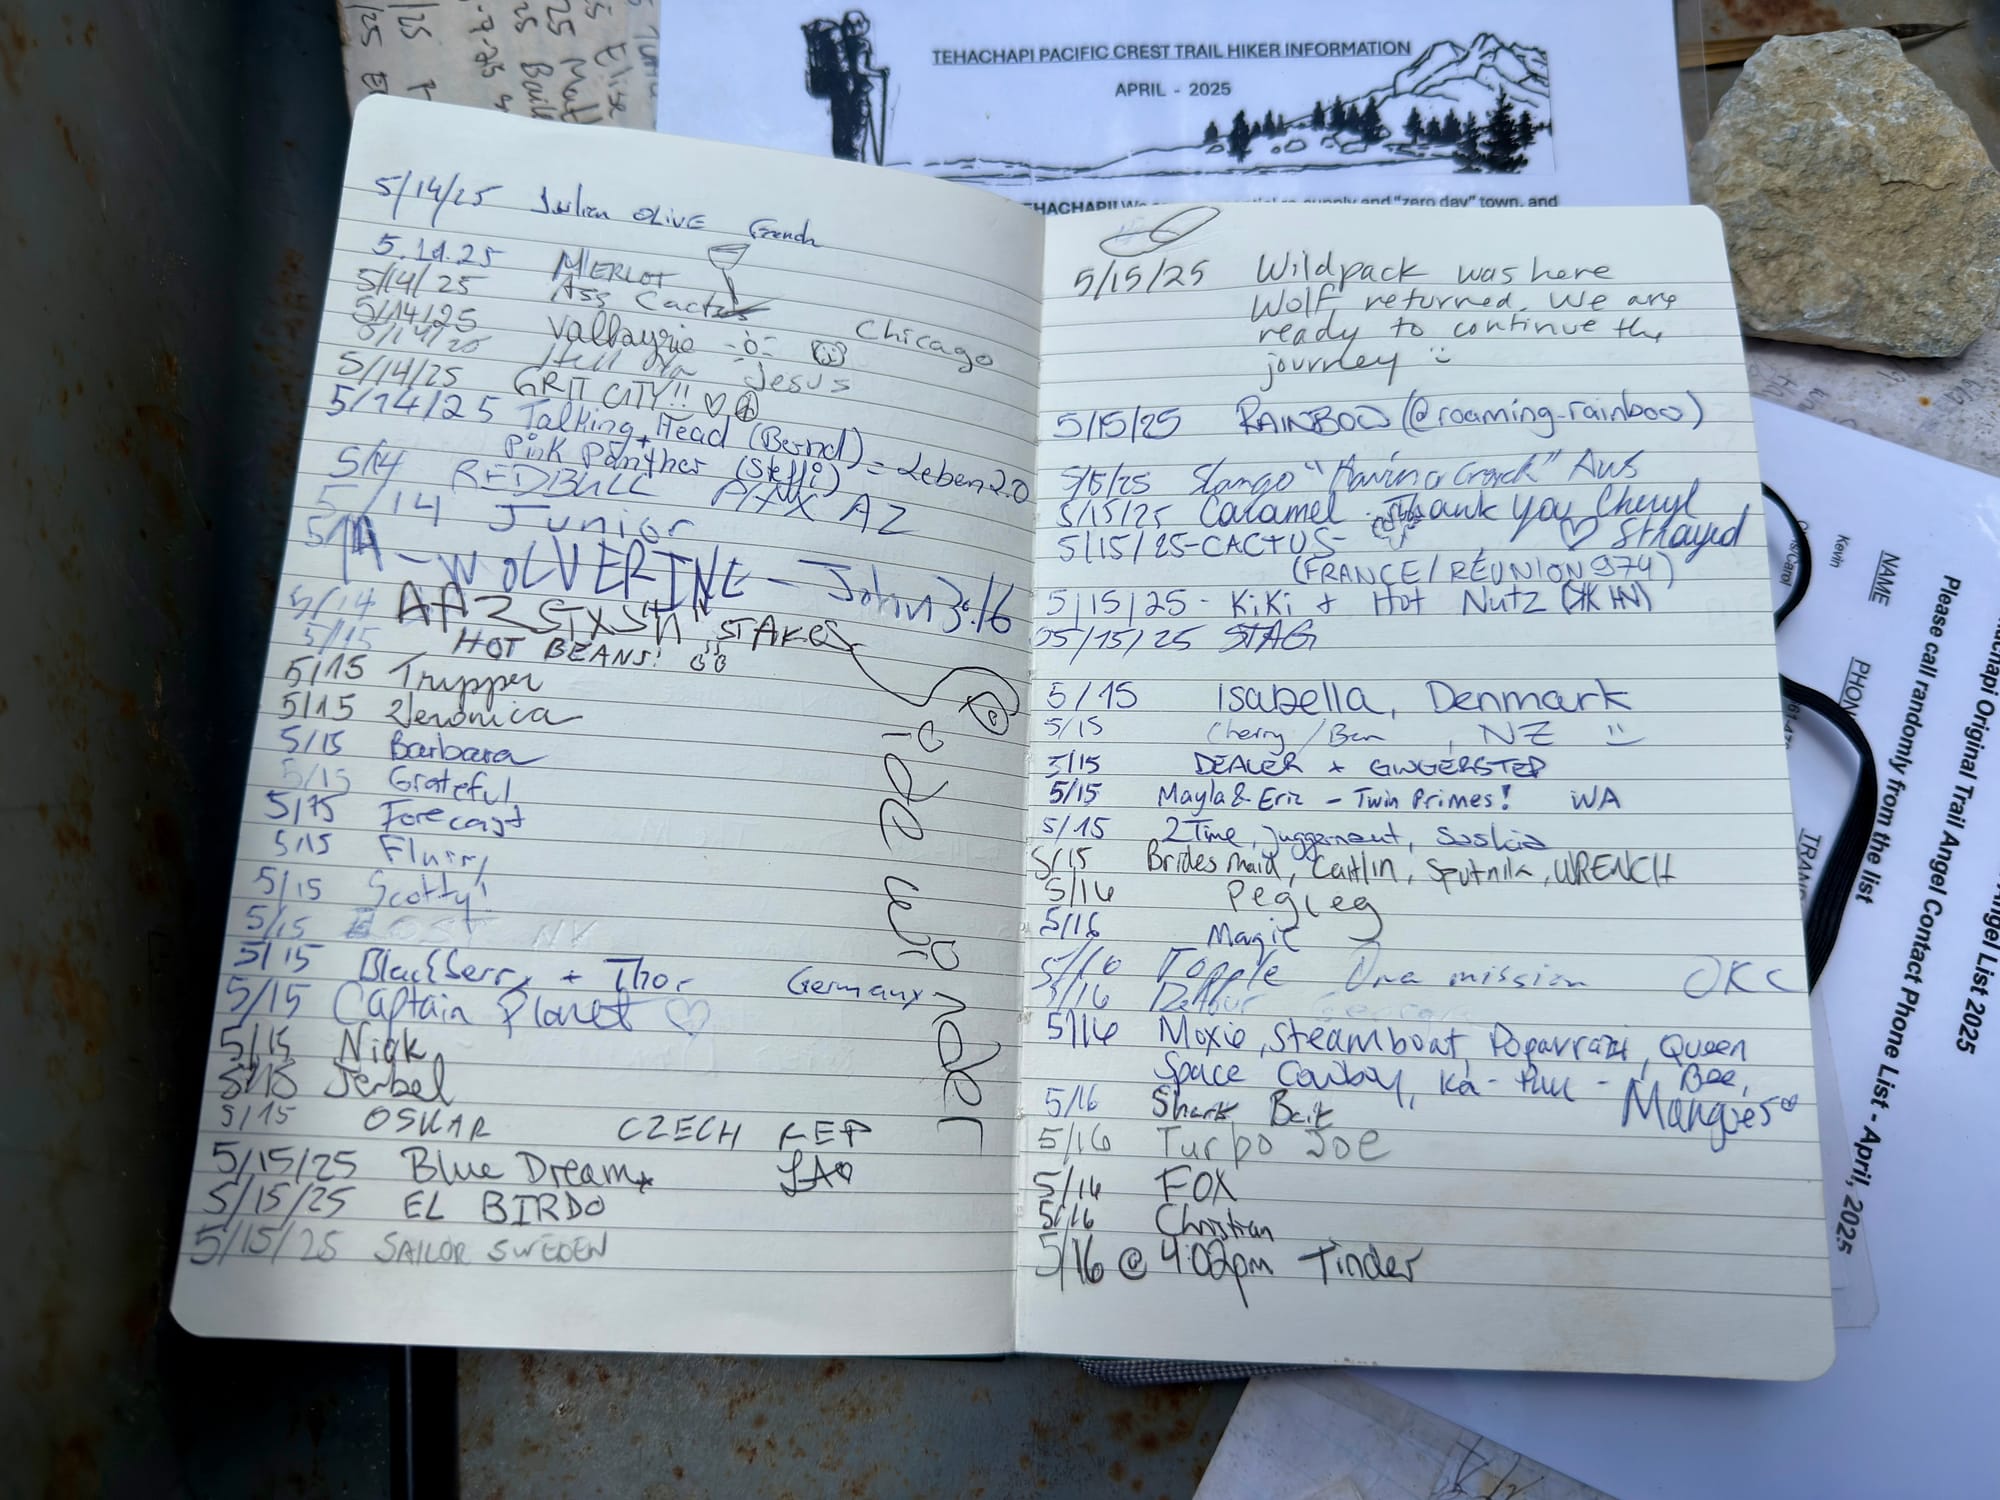 TEHACHAPI PACIFIC CREST TRAIL HIKER INFORMATION
APRIL - 2025
supply and "zero day" town, and
5/14/25 Julian OLIVE French
5.14.25 MERLOT
5/14/25 Ass Cactus
5/14/25 Valkayrie Chicago
5/14/25 Hell Ya Jesus
5/14/25 GRIT CITY!!
5/14/25 Talking Head (Bernd)
+ Pink Panther (Steffi) = Leben 2.0
5/14 REDBULL PHX AZ
5/14 Junior
5/14 - WOLVERINE - John 3:16
5/14 "STAKES"
5/15 HOT BEANS!
5/15 Trupper
5/15 Veronica
5/15 Barbara
5/15 Grateful
5/15 Forecast
5/15 Flurry
5/15 Scotty!
5/15 LOST NV
5/15 Blackberry + Thor Germany
5/15 Captain Planet
5/15 Nick
5/15 Jerbel
5/15 OSKAR CZECH REP
5/15/25 Blue Dream LA
5/15/25 EL BIRDO
5/15/25 SAILOR SWEDEN
5/15/25 Wildpack was here
Wolf returned. We are
ready to continue the
journey
5/15/25 RAINBOO (@roaming_rainboo)
5/15/25 Slango "Havin a Crack" Aus
5/15/25 Caramel - Thank you Cheryl
Strayed
5/15/25-CACTUS-
(FRANCE/RÉUNION 974)
5/15/25 - KiKi + Hot Nutz (KK HN)
05/15/25 STAG
5/15 Isabella, Denmark
5/15 Cherry / Ben, NZ
5/15 DEALER + GINGERSTEP
5/15 Mayla & Eric - Twin Primes! WA
5/15 2Time, Juggernaut, Saskia
5/15 Bridesmaid, Caitlin, Sputnik, WRENCH
5/16 Pegleg
5/16 Magic
5/16 Topple One mission OKC
5/16 Detour Georgia
5/16 Moxie, Steamboat, Poparrazi, Queen Bee,
Space Cowboy, Ka-
Mangoes
5/16 Shark Bait
5/16 Turbo Joe
5/16 FOX
5/16 Christian
5/16 @ 4:02pm Tinder
Tehachapi Original Trail Angel List 2025
Trail Angel Contact Phone List - April, 2025
Please call randomly from the list
NAME
Kevin